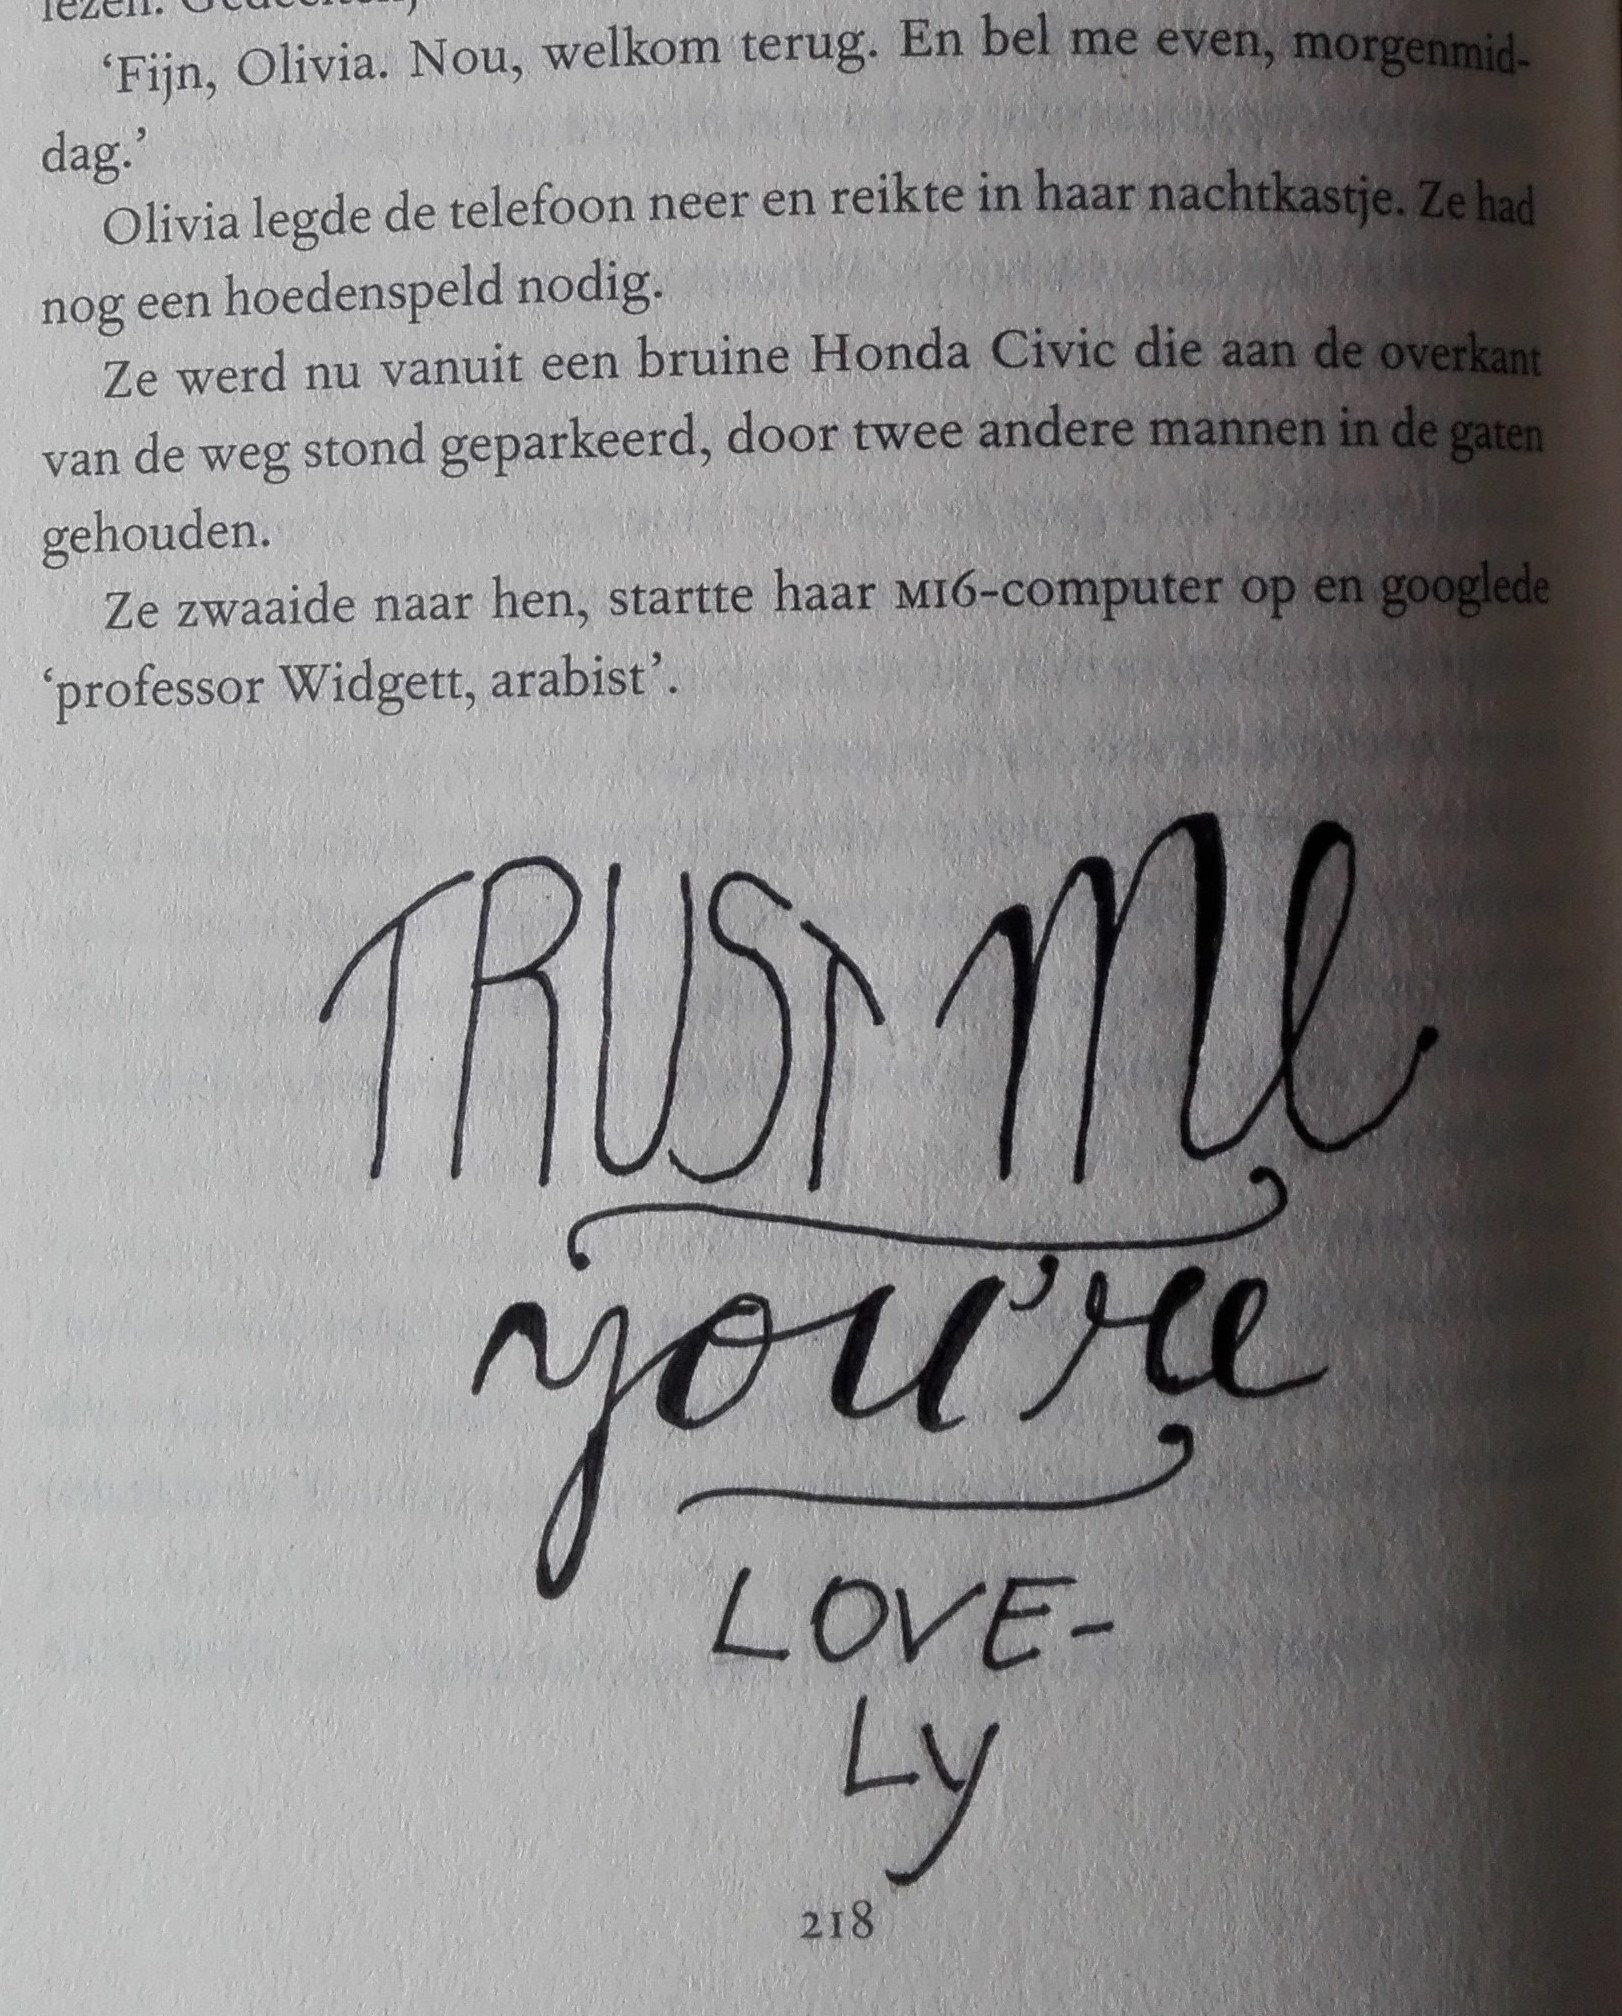 ‘Fijn, Olivia. Nou, welkom terug. En bel me even, morgenmid-
dag.’
Olivia legde de telefoon neer en reikte in haar nachtkastje. Ze had
nog een hoedenspeld nodig.
Ze werd nu vanuit een bruine Honda Civic die aan de overkant
van de weg stond geparkeerd, door twee andere mannen in de gaten
gehouden.
Ze zwaaide naar hen, startte haar MI6-computer op en googlede
‘professor Widgett, arabist’.
TRUST Me
you're
LOVE-
Ly
218